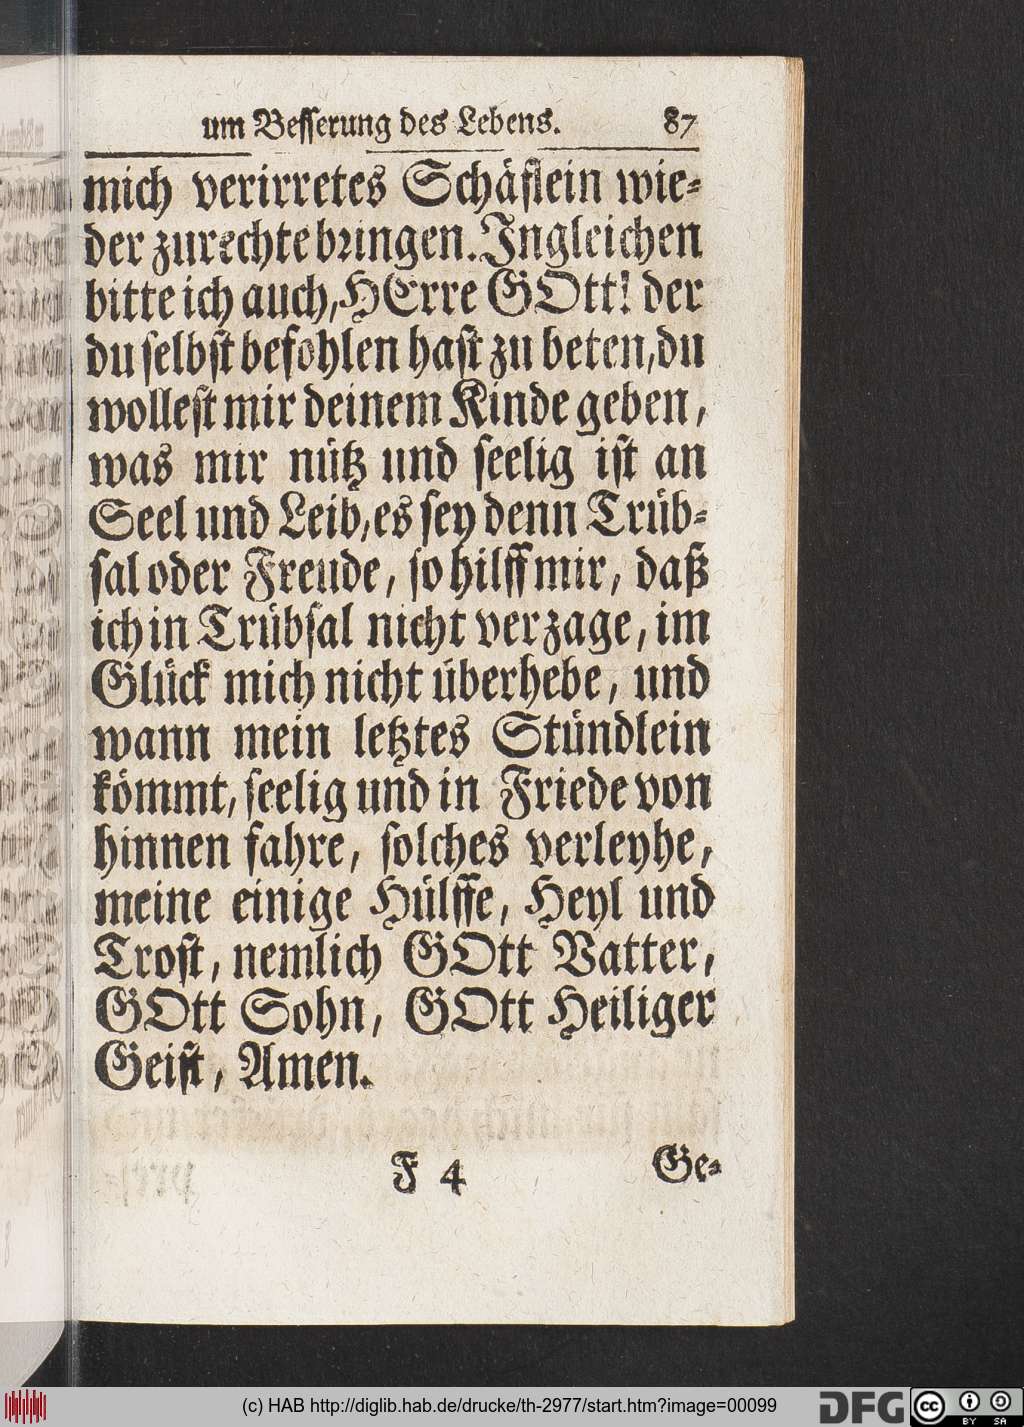 um Besserung des Lebens. 87
mich verirretes Schäflein wie-
der zurechte bringen. Ingleichen
bitte ich auch, HErre GOtt! der
du selbst befohlen hast zu beten, du
wollest mir deinem Kinde geben,
was mir nütz und seelig ist an
Seel und Leib, es sey denn Trüb-
sal oder Freude, so hilff mir, daß
ich in Trübsal nicht verzage, im
Glück mich nicht überhebe, und
wann mein letztes Stündlein
kömmt, seelig und in Friede von
hinnen fahre, solches verleyhe,
meine einige Hülffe, Heyl und
Trost, nemlich GOtt Vatter,
GOtt Sohn, GOtt Heiliger
Geist, Amen.
F 4 Ge-
(c) HAB http://diglib.hab.de/drucke/th-2977/start.htm?image=00099
DFG
cc BY SA